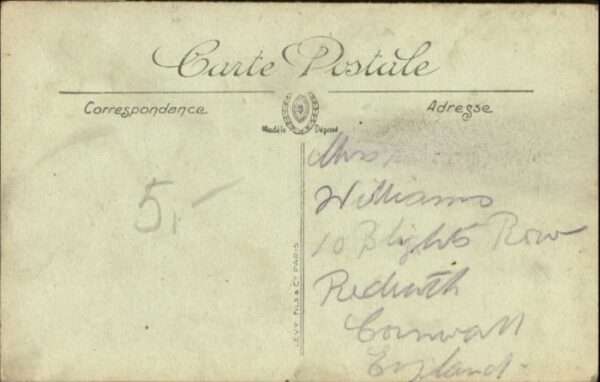 Carte Postale
Correspondance
Adresse
Modèle Déposé
LEVY FILS & Cie PARIS
5,-
Miss
Williams
10 Blights Row
Redruth
Cornwall
England.